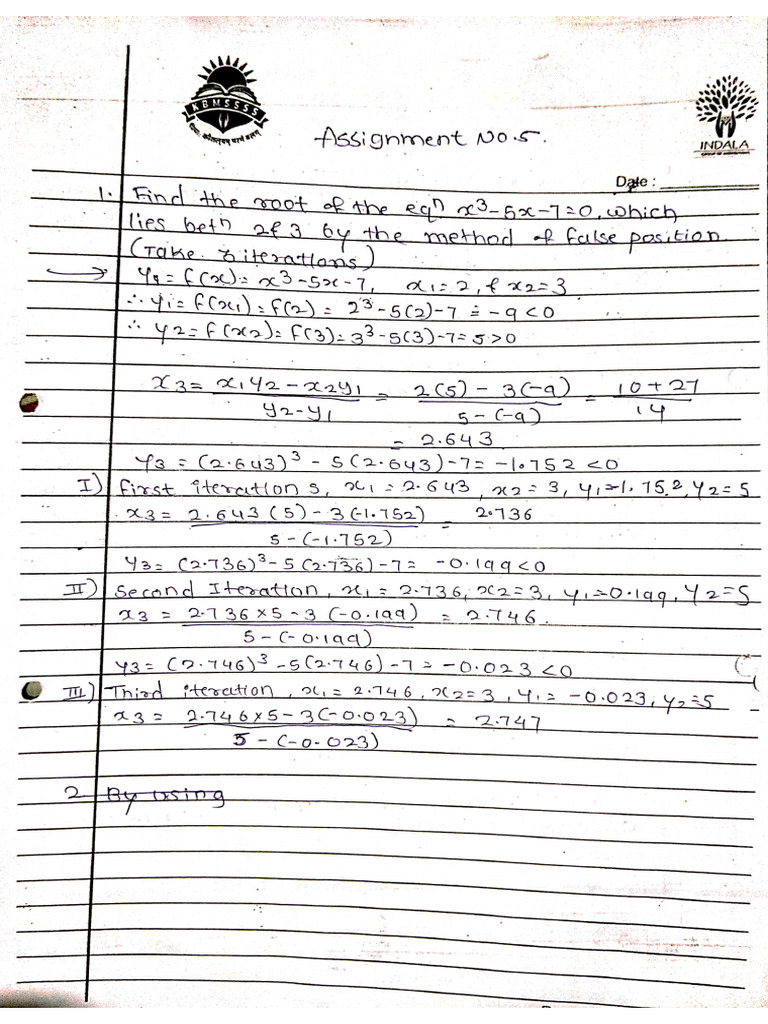 KBMSSSS
INDALA
Assignment No.5.
Date :
1. Find the root of the eqn x³-5x-7=0, which
lies betn 2 & 3 by the method of false position.
(Take 3 iterations)
→ y = f(x) = x³-5x-7, x1=2, & x2=3
∴ y1 = f(x1) = f(2) = 2³-5(2)-7 = -9 <0
∴ y2 = f(x2) = f(3) = 3³-5(3)-7 = 5 >0
x3 = x1y2 - x2y1 / y2-y1 = 2(5) - 3(-9) / 5-(-9) = 10+27 / 14
= 2.643
y3 = (2.643)³ - 5(2.643)-7 = -1.752 <0
I) first iteration s, x1 = 2.643, x2 = 3, y1=-1.752, y2=5
x3 = 2.643(5) - 3(-1.752) / 5-(-1.752) = 2.736
y3 = (2.736)³-5(2.736)-7 = -0.199<0
II) second Iteration, x1 = 2.736, x2=3, y1=-0.199, y2=5
x3 = 2.736×5-3(-0.199) / 5-(-0.199) = 2.746.
y3 = (2.746)³-5(2.746)-7 = -0.023 <0
III) Third iteration, x1 = 2.746, x2=3, y1 = -0.023, y2=5
x3 = 2.746×5-3(-0.023) / 5-(-0.023) = 2.747
2. By using